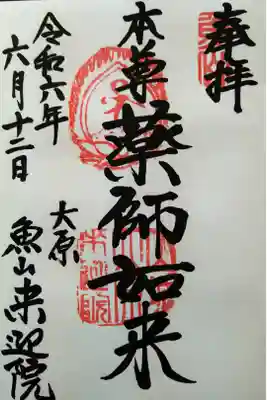 奉拝
本尊薬師如来
大原
魚山来迎院
令和六年
六月十二日